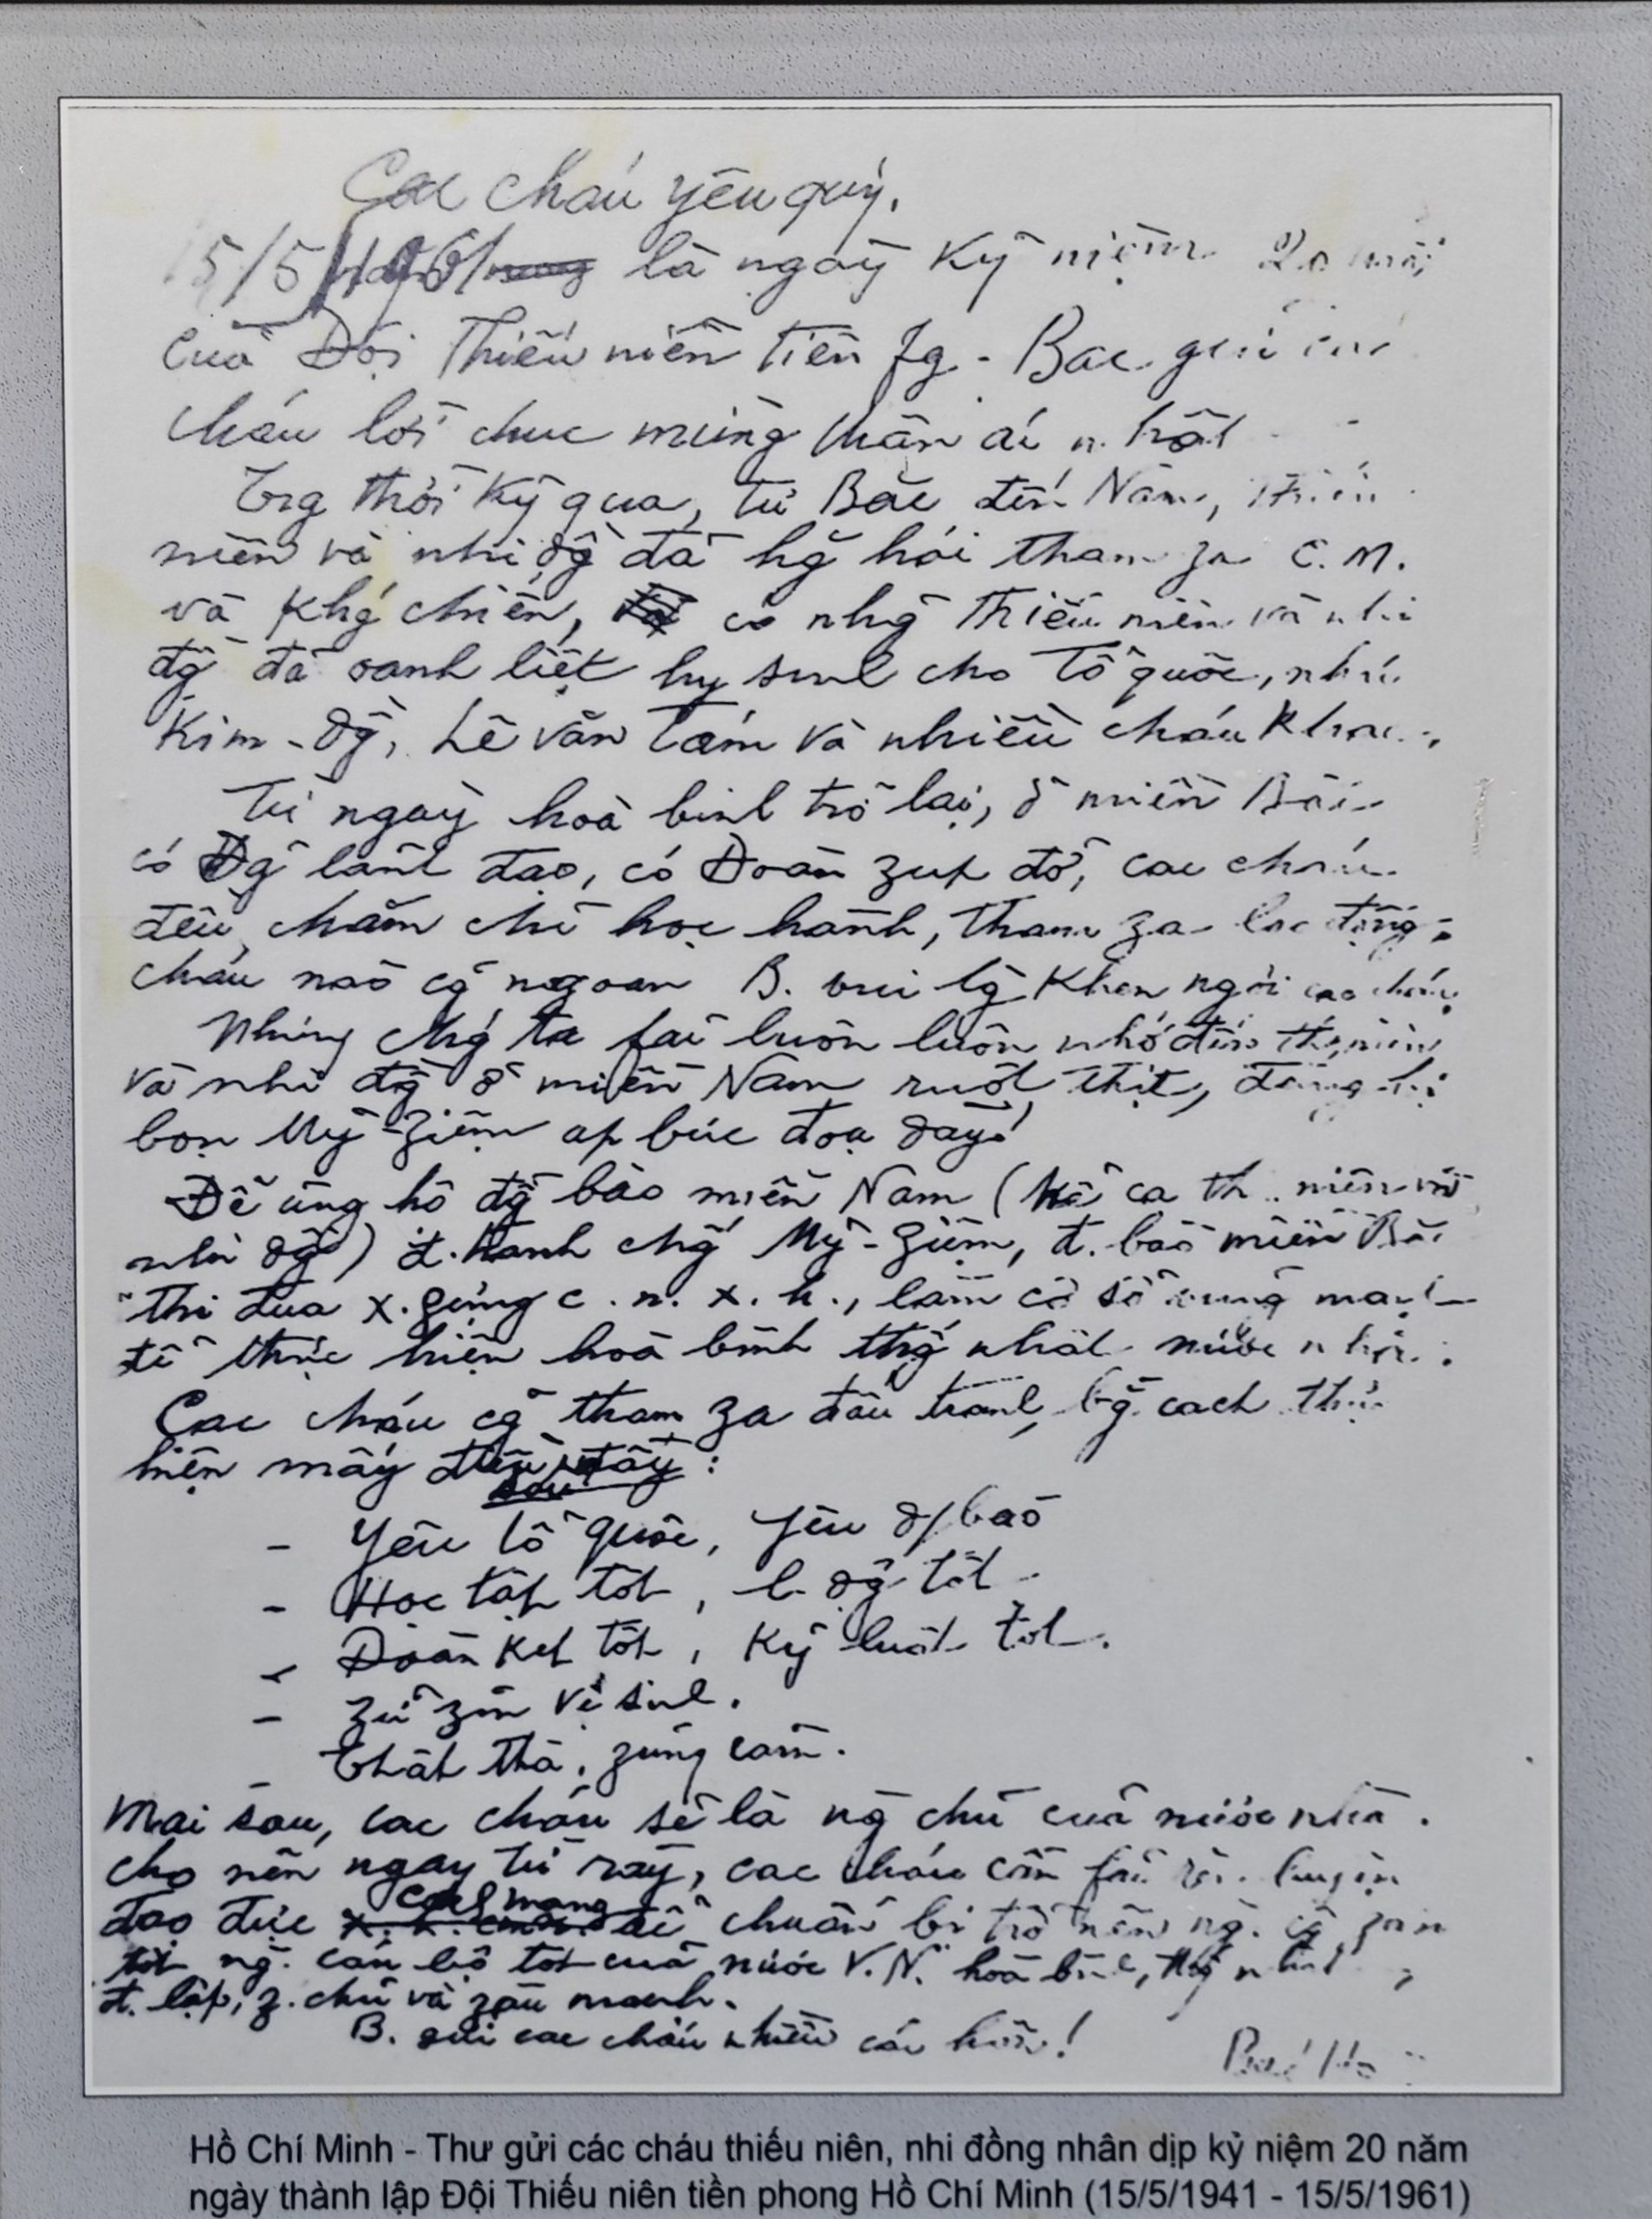 Các cháu yêu quý,
15/5/1961 là ngày kỷ niệm 20 năm
của Đội Thiếu niên tiền fg. Bác gửi các
cháu lời chúc mừng thân ái nhất
Trg thời kỳ qua, từ Bắc đến Nam, thiếu
niên và nhi đg̀ đã hğ hái tham za C.M.
và khǵ chiến, có nhg̃ thiếu niên và nhi
đg̀ đã oanh liệt hy sinh cho Tổ quốc, như
Kim-đg̀, Lê văn Tám và nhiều cháu khác.
Từ ngày hoà bình trở lại, ở miền Bắc
có Đg̉ lãnh đạo, có Đoàn zúp đỡ, các cháu
đều chăm chỉ học hành, tham za lao động
cháu nào cg̃ ngoan B. vui lg̀ khen ngợi các cháu
Nhưng chǵ ta fải luôn luôn nhớ đến th. niên
và nhi đg̀ ở miền Nam ruột thịt, đang bị
bọn Mỹ-Ziệm áp bức đoạ đày!
Để ủng hộ đg̀ bào miền Nam (kể cả th. niên và
nhi đg̀) đ. tranh chǵ Mỹ-Ziệm, đ. bào miền Bắc
thi đua x. zựng c. n. x. h., làm cơ sở vững mạnh
để thực hiện hoà bình thǵ nhất nước nhà.
Các cháu cg̃ tham za đấu tranh, bg̀ cách thực
hiện mấy điều sau:
- Yêu tổ quốc, yêu đ/bào
- Học tập tốt, l. đg̣ tốt
- Đoàn kết tốt, Kỷ luật tốt.
- Zữ zìn vệ sinh.
- Thật thà, zũng cảm.
Mai sau, các cháu sẽ là ng̀ chủ của nước nhà.
Cho nên ngay từ rày, các cháu cần fải rèn luyện
đạo đức cách mạng để chuẩn bị trở nên ng.
tốt ng. cán bộ tốt của nước V.N. hoà bình, thǵ nhất,
đ. lập, z. chủ và zàu mạnh.
B. gửi các cháu nhiều cái hôn!
Bác Hồ
Hồ Chí Minh - Thư gửi các cháu thiếu niên, nhi đồng nhân dịp kỷ niệm 20 năm
ngày thành lập Đội Thiếu niên tiền phong Hồ Chí Minh (15/5/1941 - 15/5/1961)